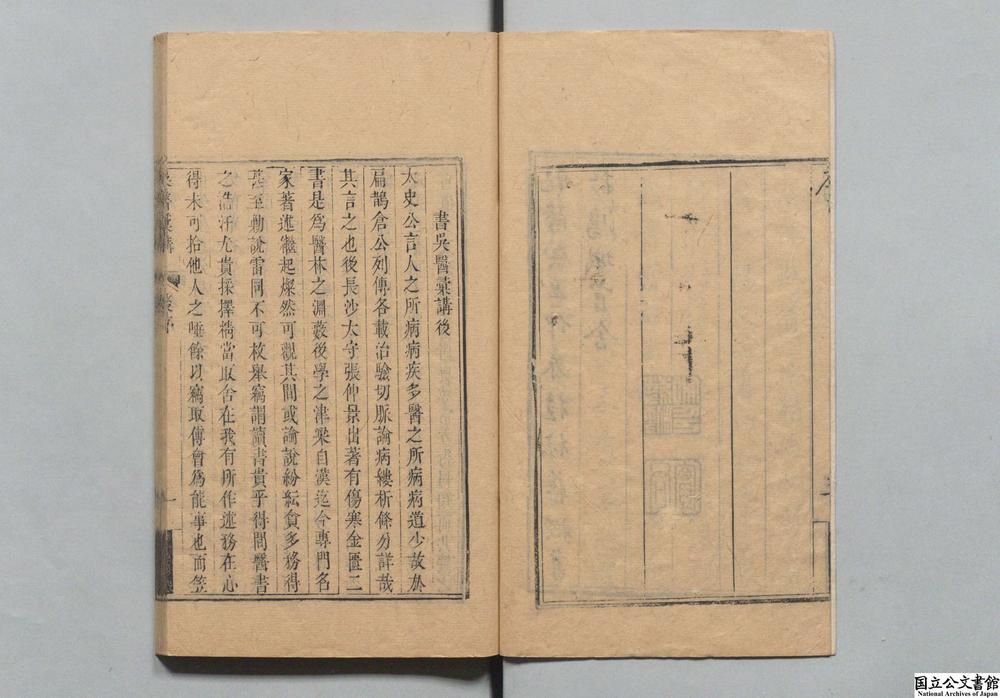 書吳醫彙講後
太史公言人之所病病疾多醫之所病病道少故於
扁鵲倉公列傳各載治驗切脈論病縷析條分詳哉
其言之也後長沙太守張仲景出著有傷寒金匱二
書是爲醫林之淵藪後學之津梁自漢迄今專門名
家著述繼起燦然可觀其間或論說紛紜貪多務得
甚至勦說雷同不可枚舉竊謂讀書貴乎得間醫書
之浩汗尤貴採擇精當取舍在我有所作述務在心
得未可拾他人之唾餘以竊取傅會爲能事也而笠
国立公文書館
National Archives of Japan